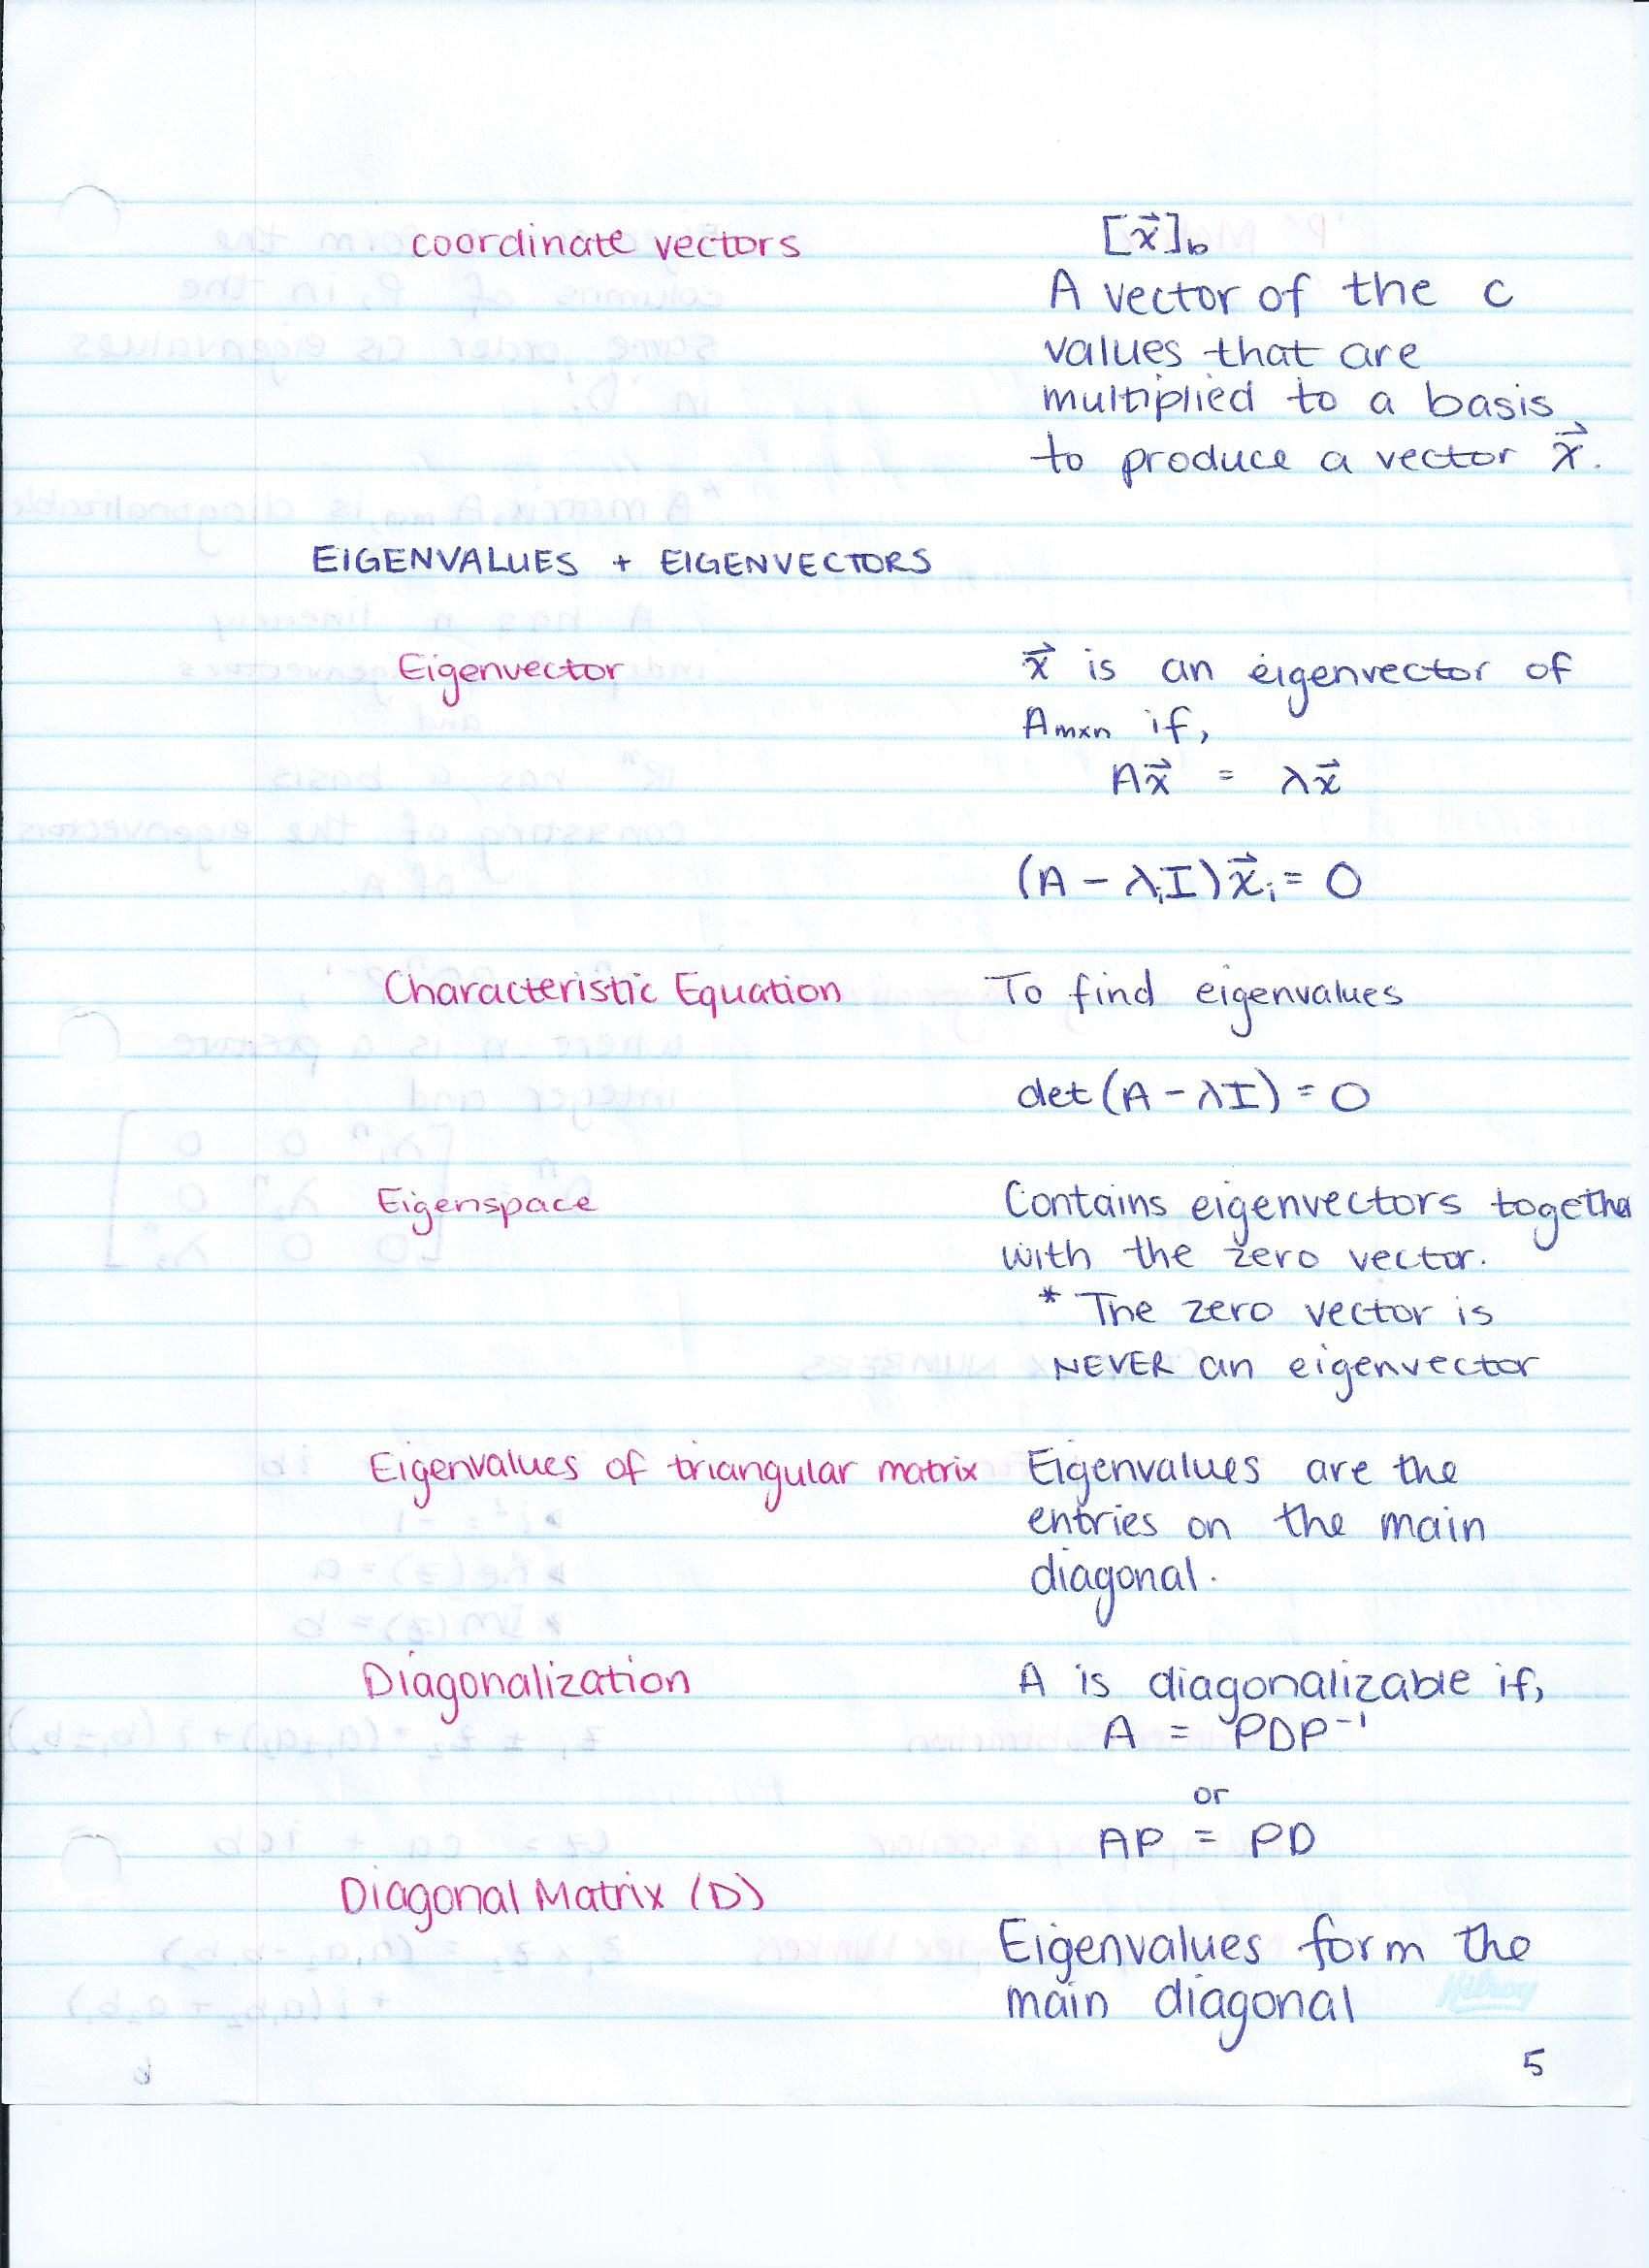 coordinate vectors [x⃗]b
A vector of the c
values that are
multiplied to a basis
to produce a vector x⃗.
EIGENVALUES + EIGENVECTORS
Eigenvector x⃗ is an eigenvector of
Amxn if,
Ax⃗ = λx⃗
(A - λiI)x⃗i = 0
Characteristic Equation To find eigenvalues
det(A - λI) = 0
Eigenspace Contains eigenvectors together
with the zero vector.
* The zero vector is
NEVER an eigenvector
Eigenvalues of triangular matrix Eigenvalues are the
entries on the main
diagonal.
Diagonalization A is diagonalizable if,
A = PDP⁻¹
or
AP = PD
Diagonal Matrix (D)
Eigenvalues form the
main diagonal
Hilroy
5